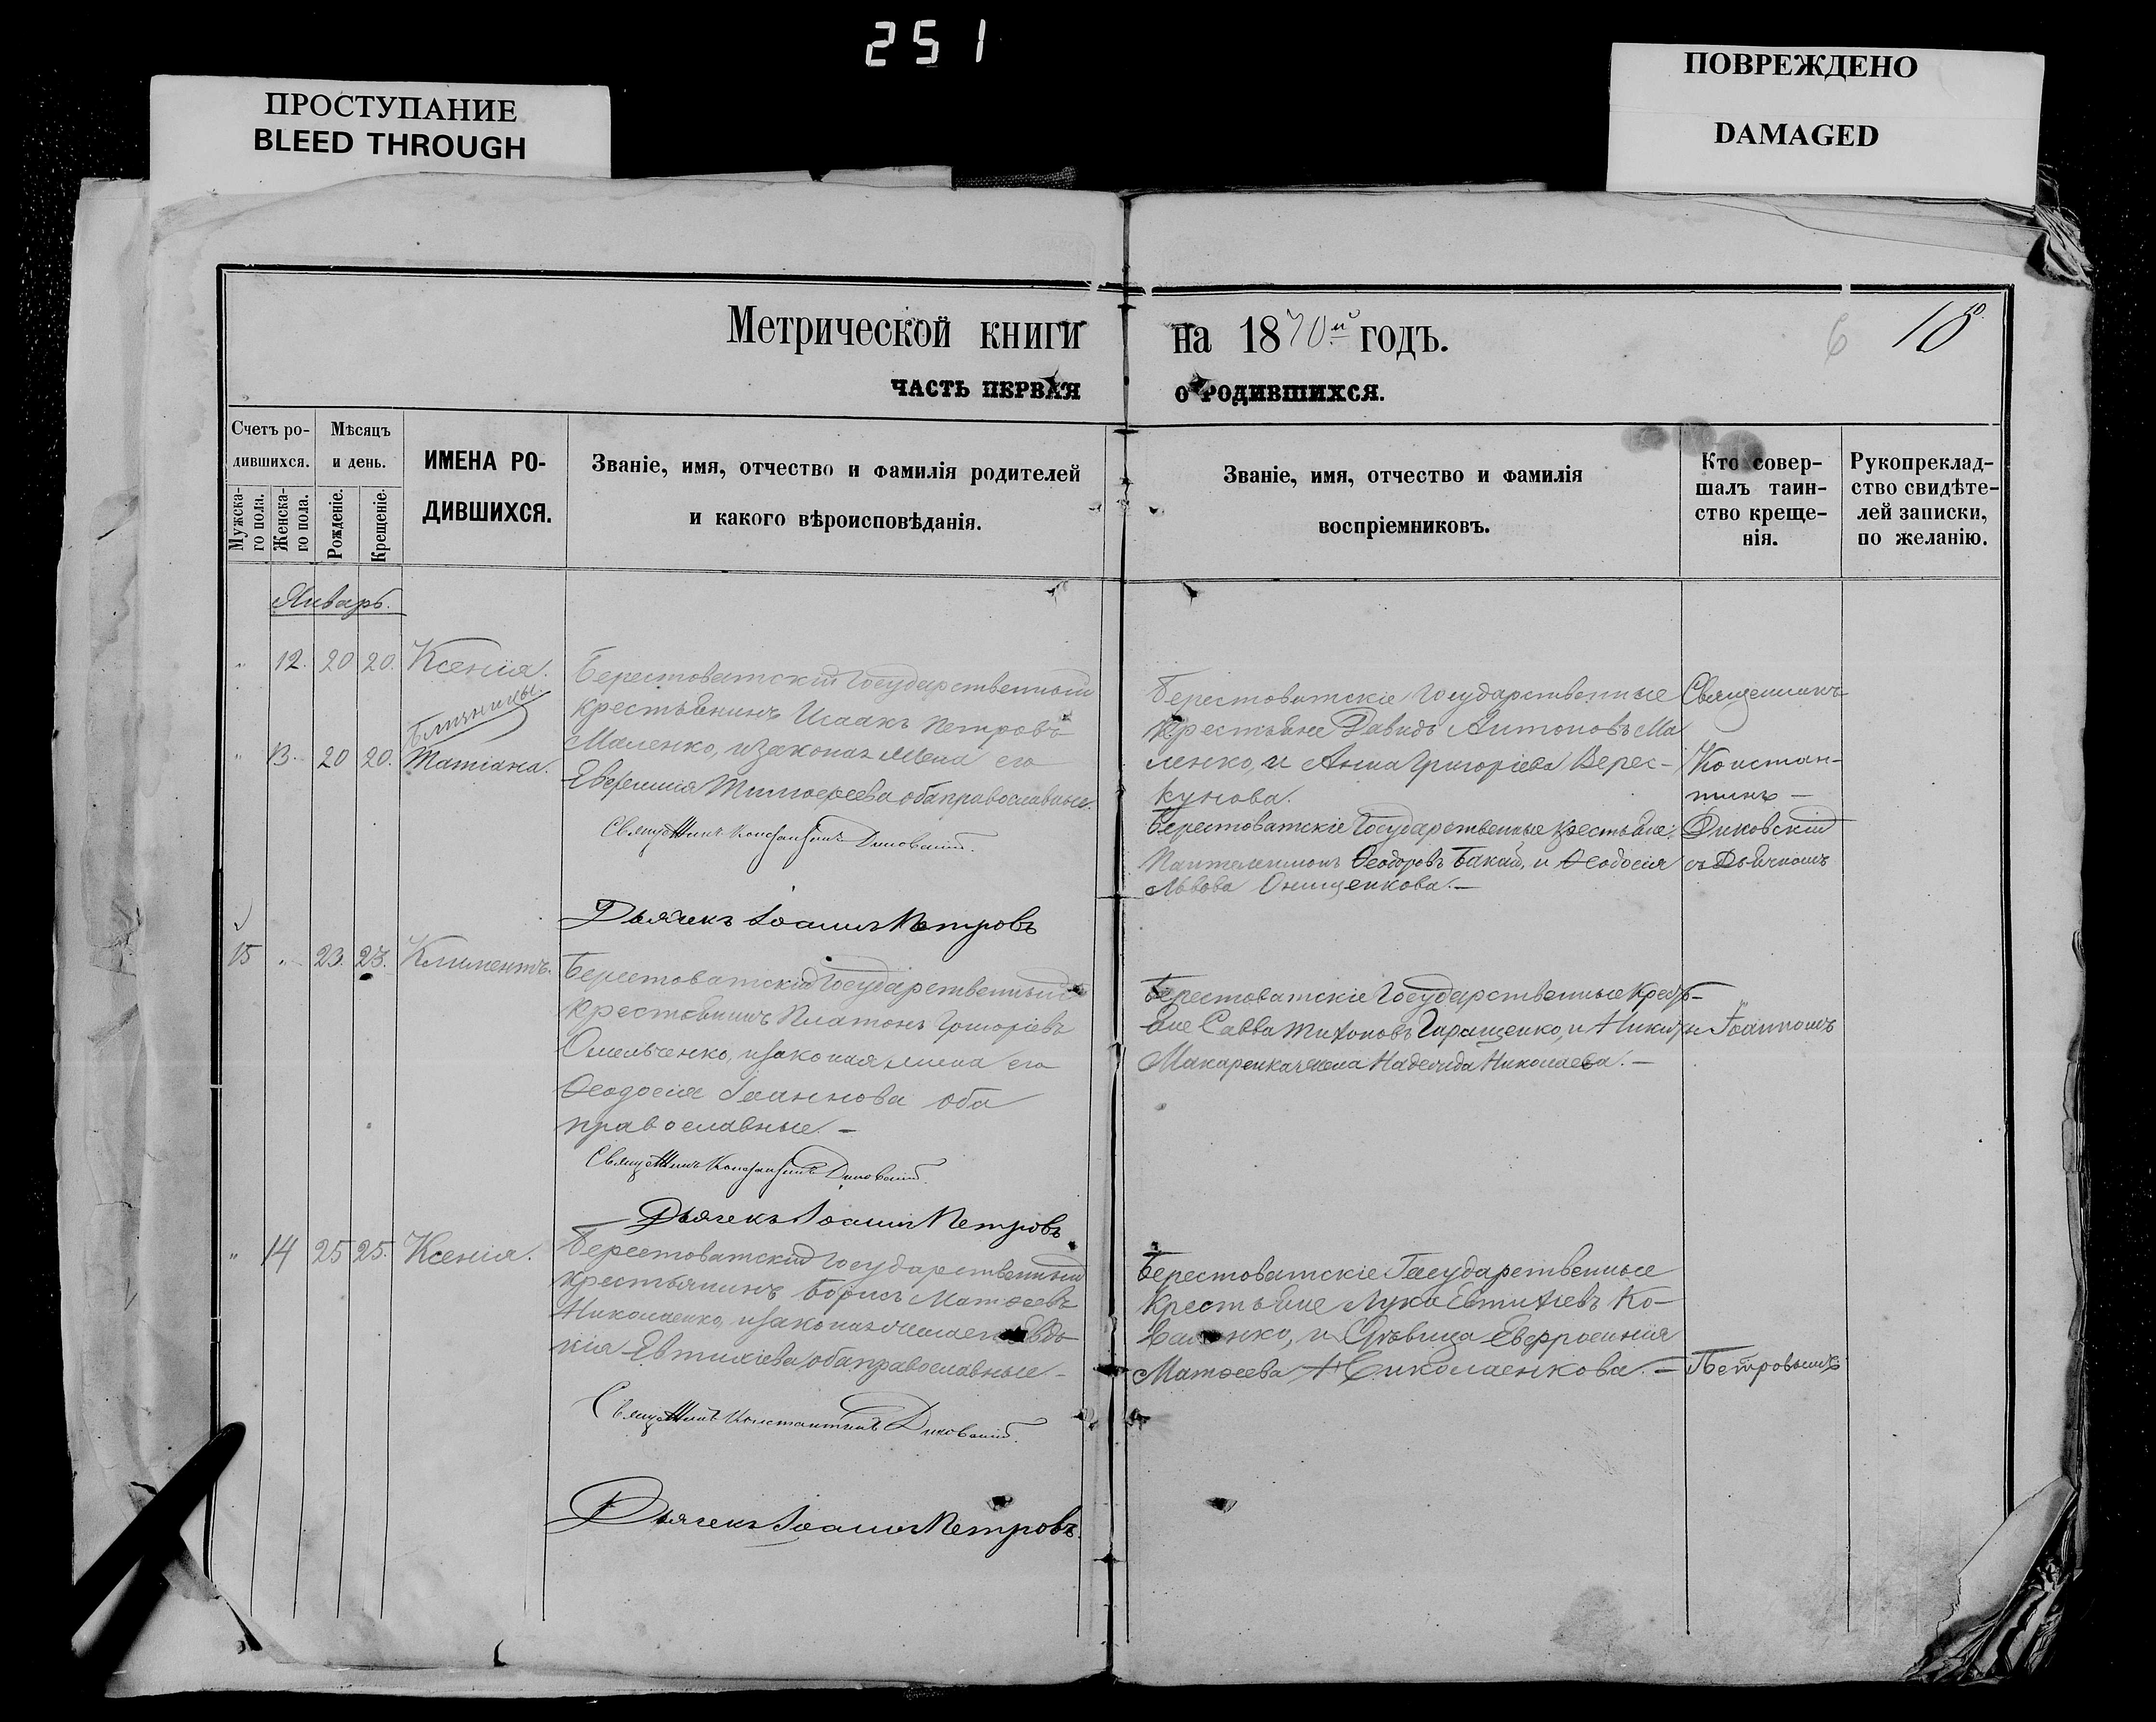 251
ПРОСТУПАНИЕ
BLEED THROUGH
ПОВРЕЖДЕНО
DAMAGED
Метрической книги на 1870й годъ.
6 18
ЧАСТЬ ПЕРВАЯ О РОДИВШИХСЯ.
Счетъ ро-
дившихся.
Мужска-
го пола.
Женска-
го пола.
Мѣсяцъ
и день.
Рожденіе.
Крещеніе.
ИМЕНА РО-
ДИВШИХСЯ.
Званіе, имя, отчество и фамилія родителей
и какого вѣроисповѣданія.
Званіе, имя, отчество и фамилія
воспріемниковъ.
Кто совер-
шалъ таин-
ство креще-
нія.
Рукопреклад-
ство свидѣте-
лей записки,
по желанію.
Январь.
" 12. 20 20. Ксенія.
близницы.
" 13. 20 20. Татіана.
Берестоватскій Государственный
крестьянинъ Исаакъ Петровъ
Маленко, и законая жена его
Евфимія Тимофеева оба православные.
Священникъ Константинъ Диковскій.
Дьячекъ Іоаннъ Петровъ
Берестоватскіе Государственные
крестьяне Давидъ Антоновъ Ма
ленко, и Анна Григоріева Верес-
кунова.
Берестоватскіе Государственные крестьяне:
Пантелеимонъ Ѳеодоровъ Бакай, и Ѳеодосія
Львова Онищенкова. —
Священникъ
Констан-
тинъ —
Диковскій
съ Дьячкомъ
15 " 23. 23. Климентъ.
Берестоватскій Государственный
крестьянинъ Платонъ Григоріевъ
Омельченко, и законая жена его
Ѳеодосія Іоаннова оба
православные. —
Священникъ Константинъ Диковскій.
Дьячекъ Іоаннъ Петровъ
Берестоватскіе Государственные Кресть-
яне Савва Тихоновъ Гаращенко, и Никиты
Макаренка жена Надежда Николаева. —
Іоанномъ
" 14 25 25. Ксенія.
Берестоватскій Государственный
крестьянинъ Борисъ Матѳеевъ
Николаенко, и законая жена его Евдо-
кія Евтихіева, оба православные —
Священникъ Константинъ Диковскій.
Дьячекъ Іоаннъ Петровъ.
Берестоватскіе Государственные
крестьяне Лука Евтихіевъ Ко-
валенко, и Дѣвица Евфросинія
Матѳеева Николаенкова. —
Петровымъ